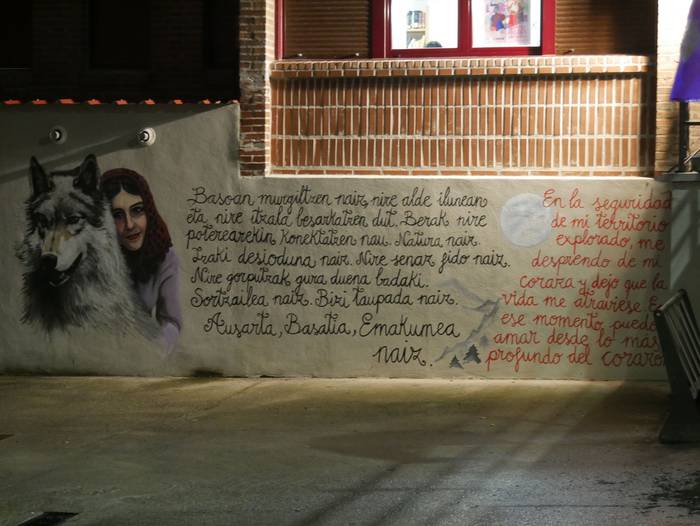 Basoan murgiltzen naiz, nire alde ilunean
eta nire itzala besarkatzen dut. Berak nire
poterearekin konektatzen nau. Natura naiz.
Izaki desioduna naiz. Nire senaz fido naiz.
Nire gorputzak gura duena badaki.
Sortzailea naiz. Bizi taupada naiz.
Ausarta, Basatia, Emakumea
naiz.
En la seguridad
de mi territorio
explorado, me
desprendo de mi
coraza y dejo que la
vida me atraviese. E
ese momento puedo
amar desde lo más
profundo del corazón